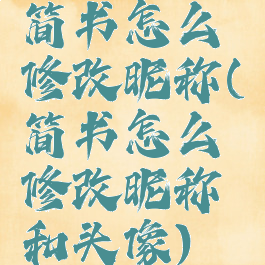 简书怎么
修改昵称(
简书怎么
修改昵称
和头像)